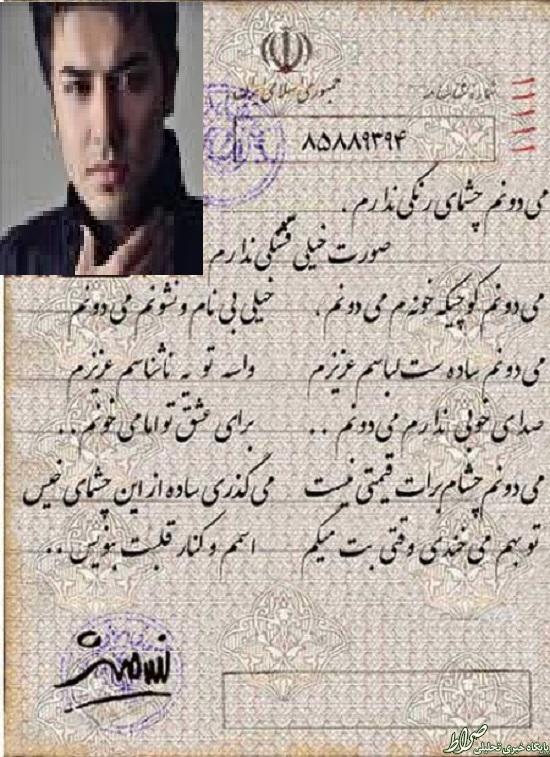 جمهوری اسلامی ایران
۱۱۱۱۱
۸۵۸۸۹۳۹۴
می دونم چشمای رنگی ندارم .
صورت خیلی قشنگی ندارم
می دونم کوچیکه خونه م می دونم . خیلی بی نام و نشونم می دونم
می دونم ساده ست لباسم عزیزم واسه تو یه ناشناسم عزیزم
صدای خوبی ندارم می دونم .. برای عشق تو اما می خونم ..
می دونم چشام برات قیمتی نیست می گذری ساده از این چشمای خیس
تو بهم می خندی وقتی بت میگم اسم و کنار قلبت بنویس ..
پایگاه خبری تحلیلی صراط